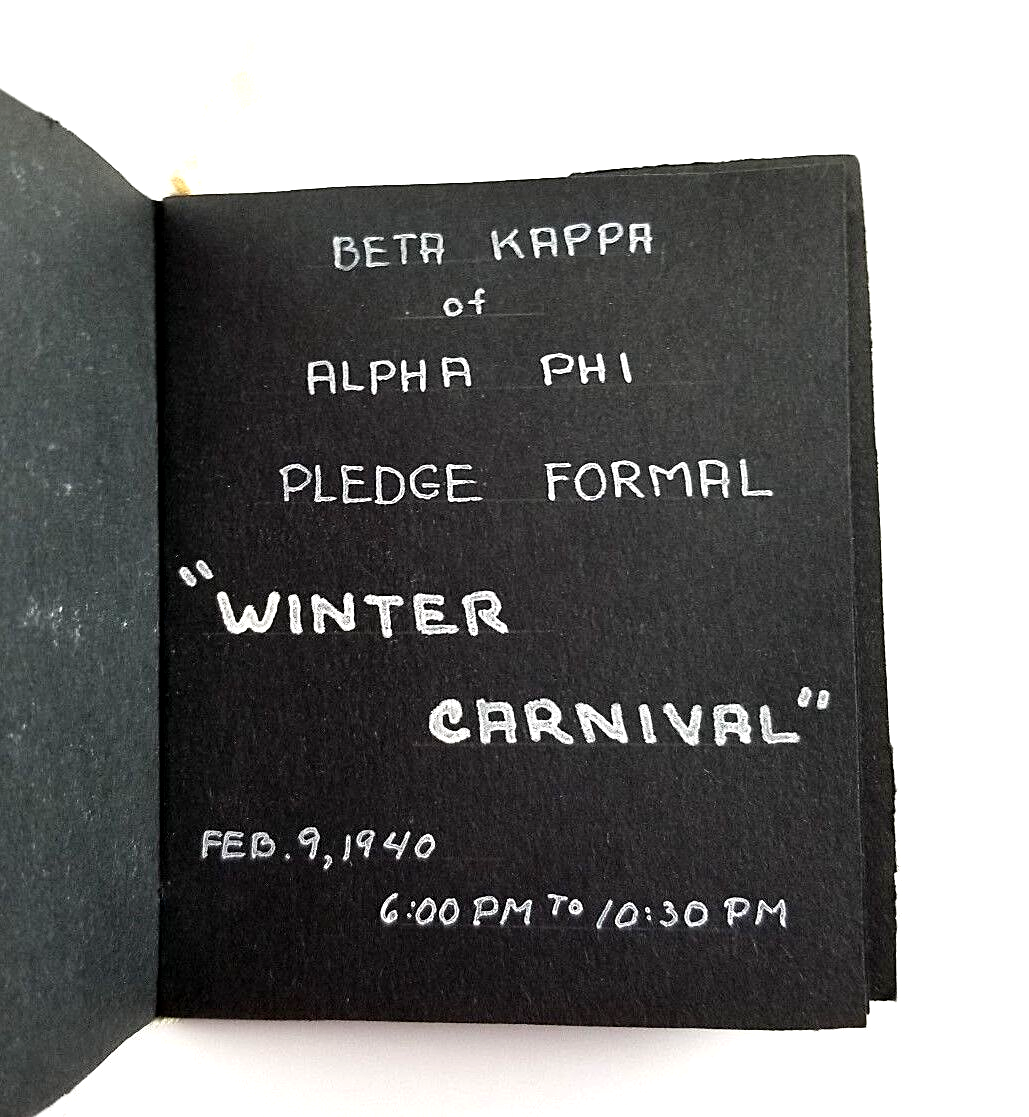 BETA KAPPA
of
ALPHA PHI
PLEDGE FORMAL
"WINTER
CARNIVAL"
FEB. 9, 1940
6:00 PM TO 10:30 PM